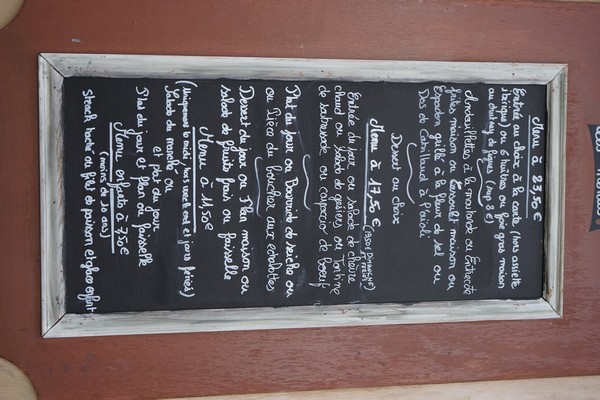 Menu à 23,50€
Entrée au choix à la carte (hors assiette
ibérique ou 6 huîtres ou foie gras maison
au chutney de figues (sup 8€)
Andouillettes à la moutarde ou Entrecôte
frites maison ou Cassoulet maison ou
Espadon grillé à la fleur de sel ou
Dos de Cabillaud à l'aïoli
Dessert au choix
Menu à 17,50€
Entrée du jour ou salade de chèvre
chaud ou salade de gésiers ou Tartine
de soubressade ou carpaccio de boeuf
Plat du jour ou Bourride de seiche ou
ou Pièce du boucher aux échalotes
Dessert du jour ou Flan maison ou
salade de fruits frais ou faisselle
Menu à 11,50€
(Uniquement le midi, hors week end et jours fériés)
Salade du marché ou
et plat du jour
Plat du jour et flan ou faisselle
Menu enfants à 7,50€
(moins de 10 ans)
steak haché ou filet de poisson et glace enfant